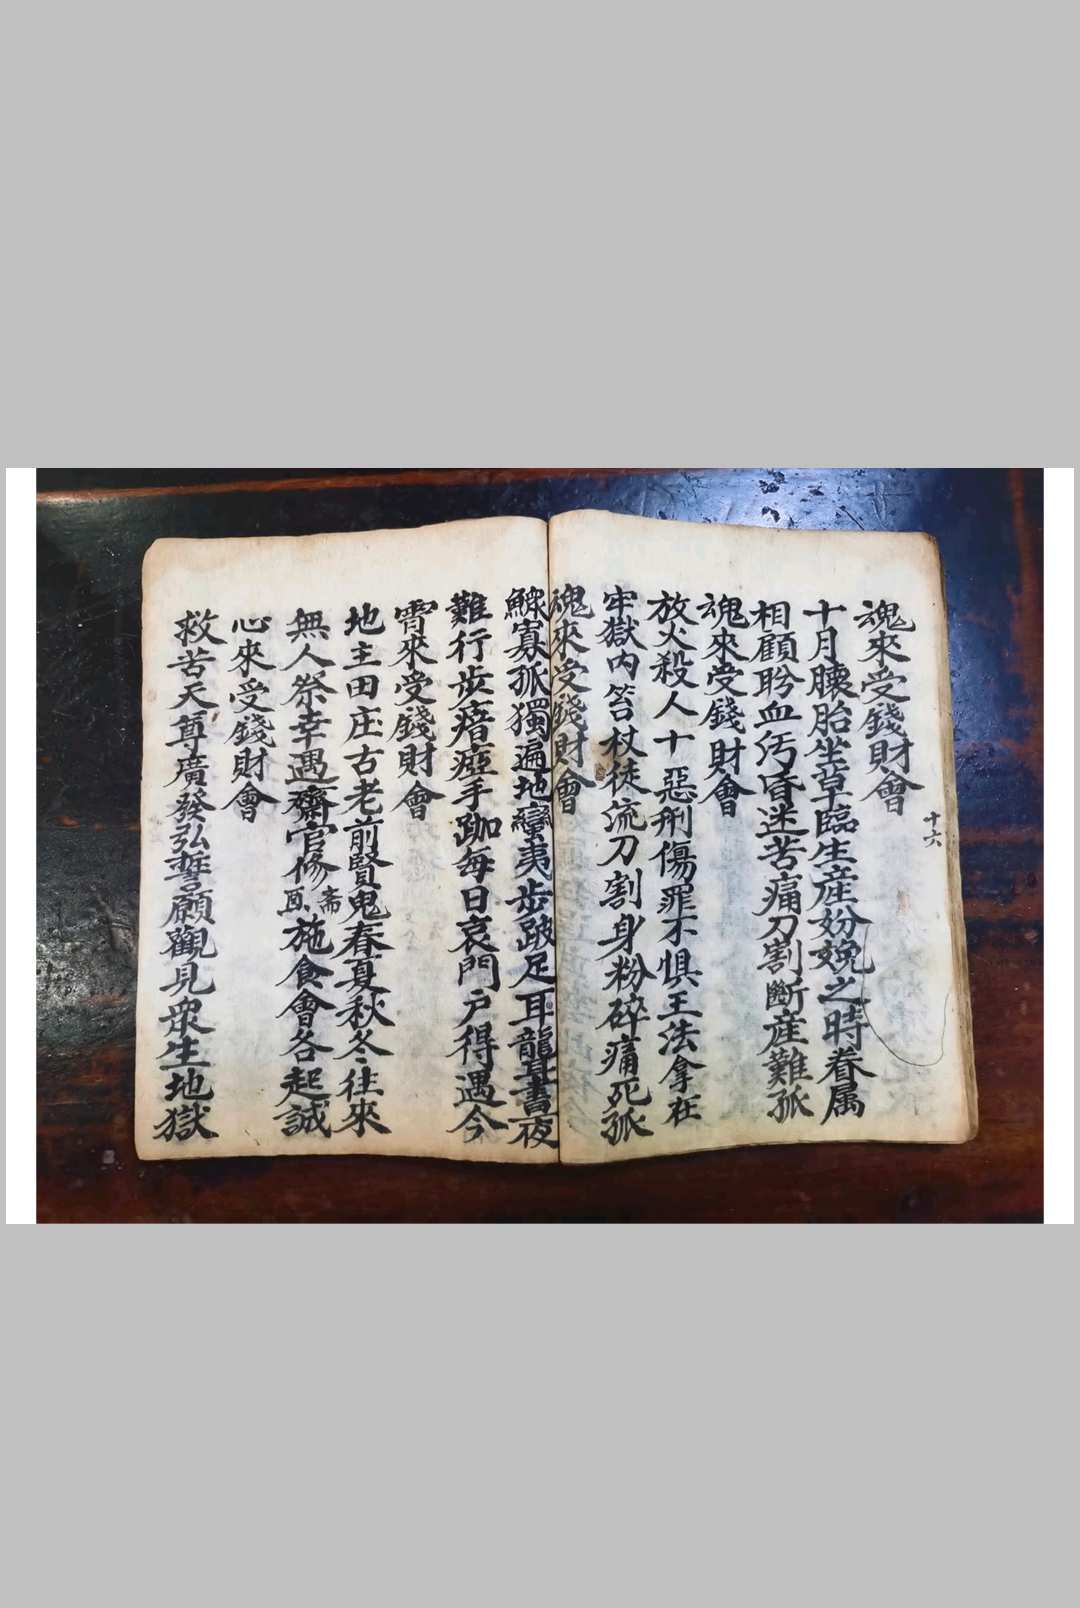 魂來受錢財會
十六
十月懷胎坐草臨生産妢娩之時眷属
相顧盻血汚昏迷苦痛刀割斷産難孤
魂來受錢財會
放火殺人十惡刑傷罪不惧王法拿在
牢獄內笞杖徒流刀割身粉碎痛死孤
魂來受錢財會
鰥寡孤獨遍地蠻夷步跛足耳聾晝夜
難行步瘖瘂手跏每日哀門户得遇今
霄來受錢財會
地主田庄古老前賢鬼春夏秋冬往來
無人祭幸遇齋官修斋施食會各起誠
心來受錢財會
救苦天尊廣發弘誓願觀見衆生地獄